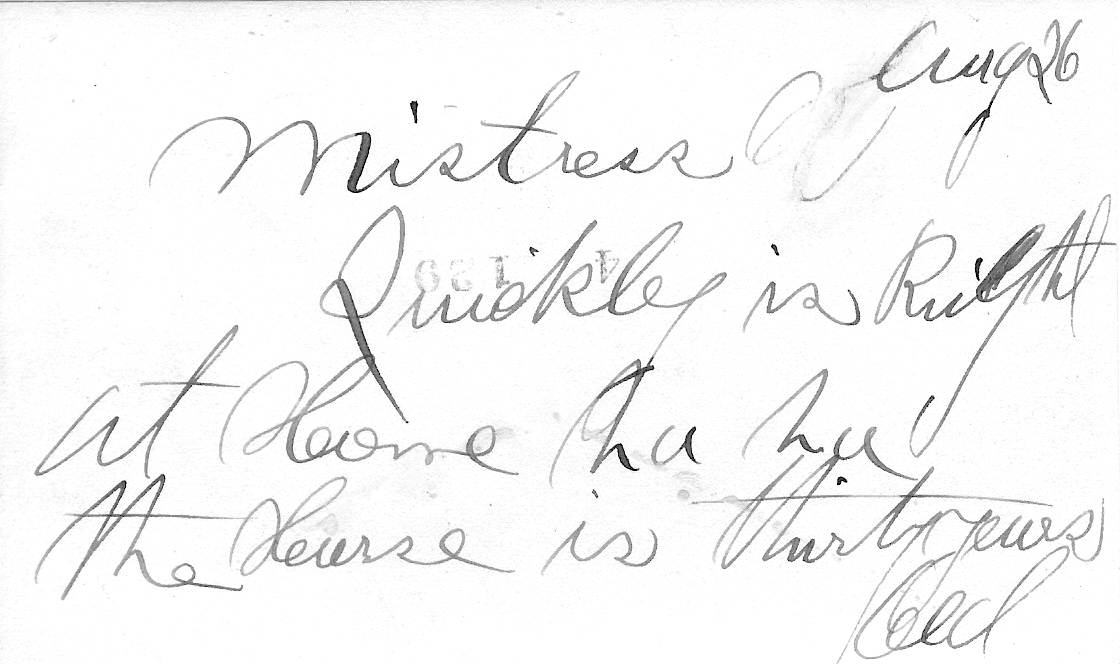 Aug 26
Mistress
Quickley is Right
at Home ha ha
The House is thirty years
old